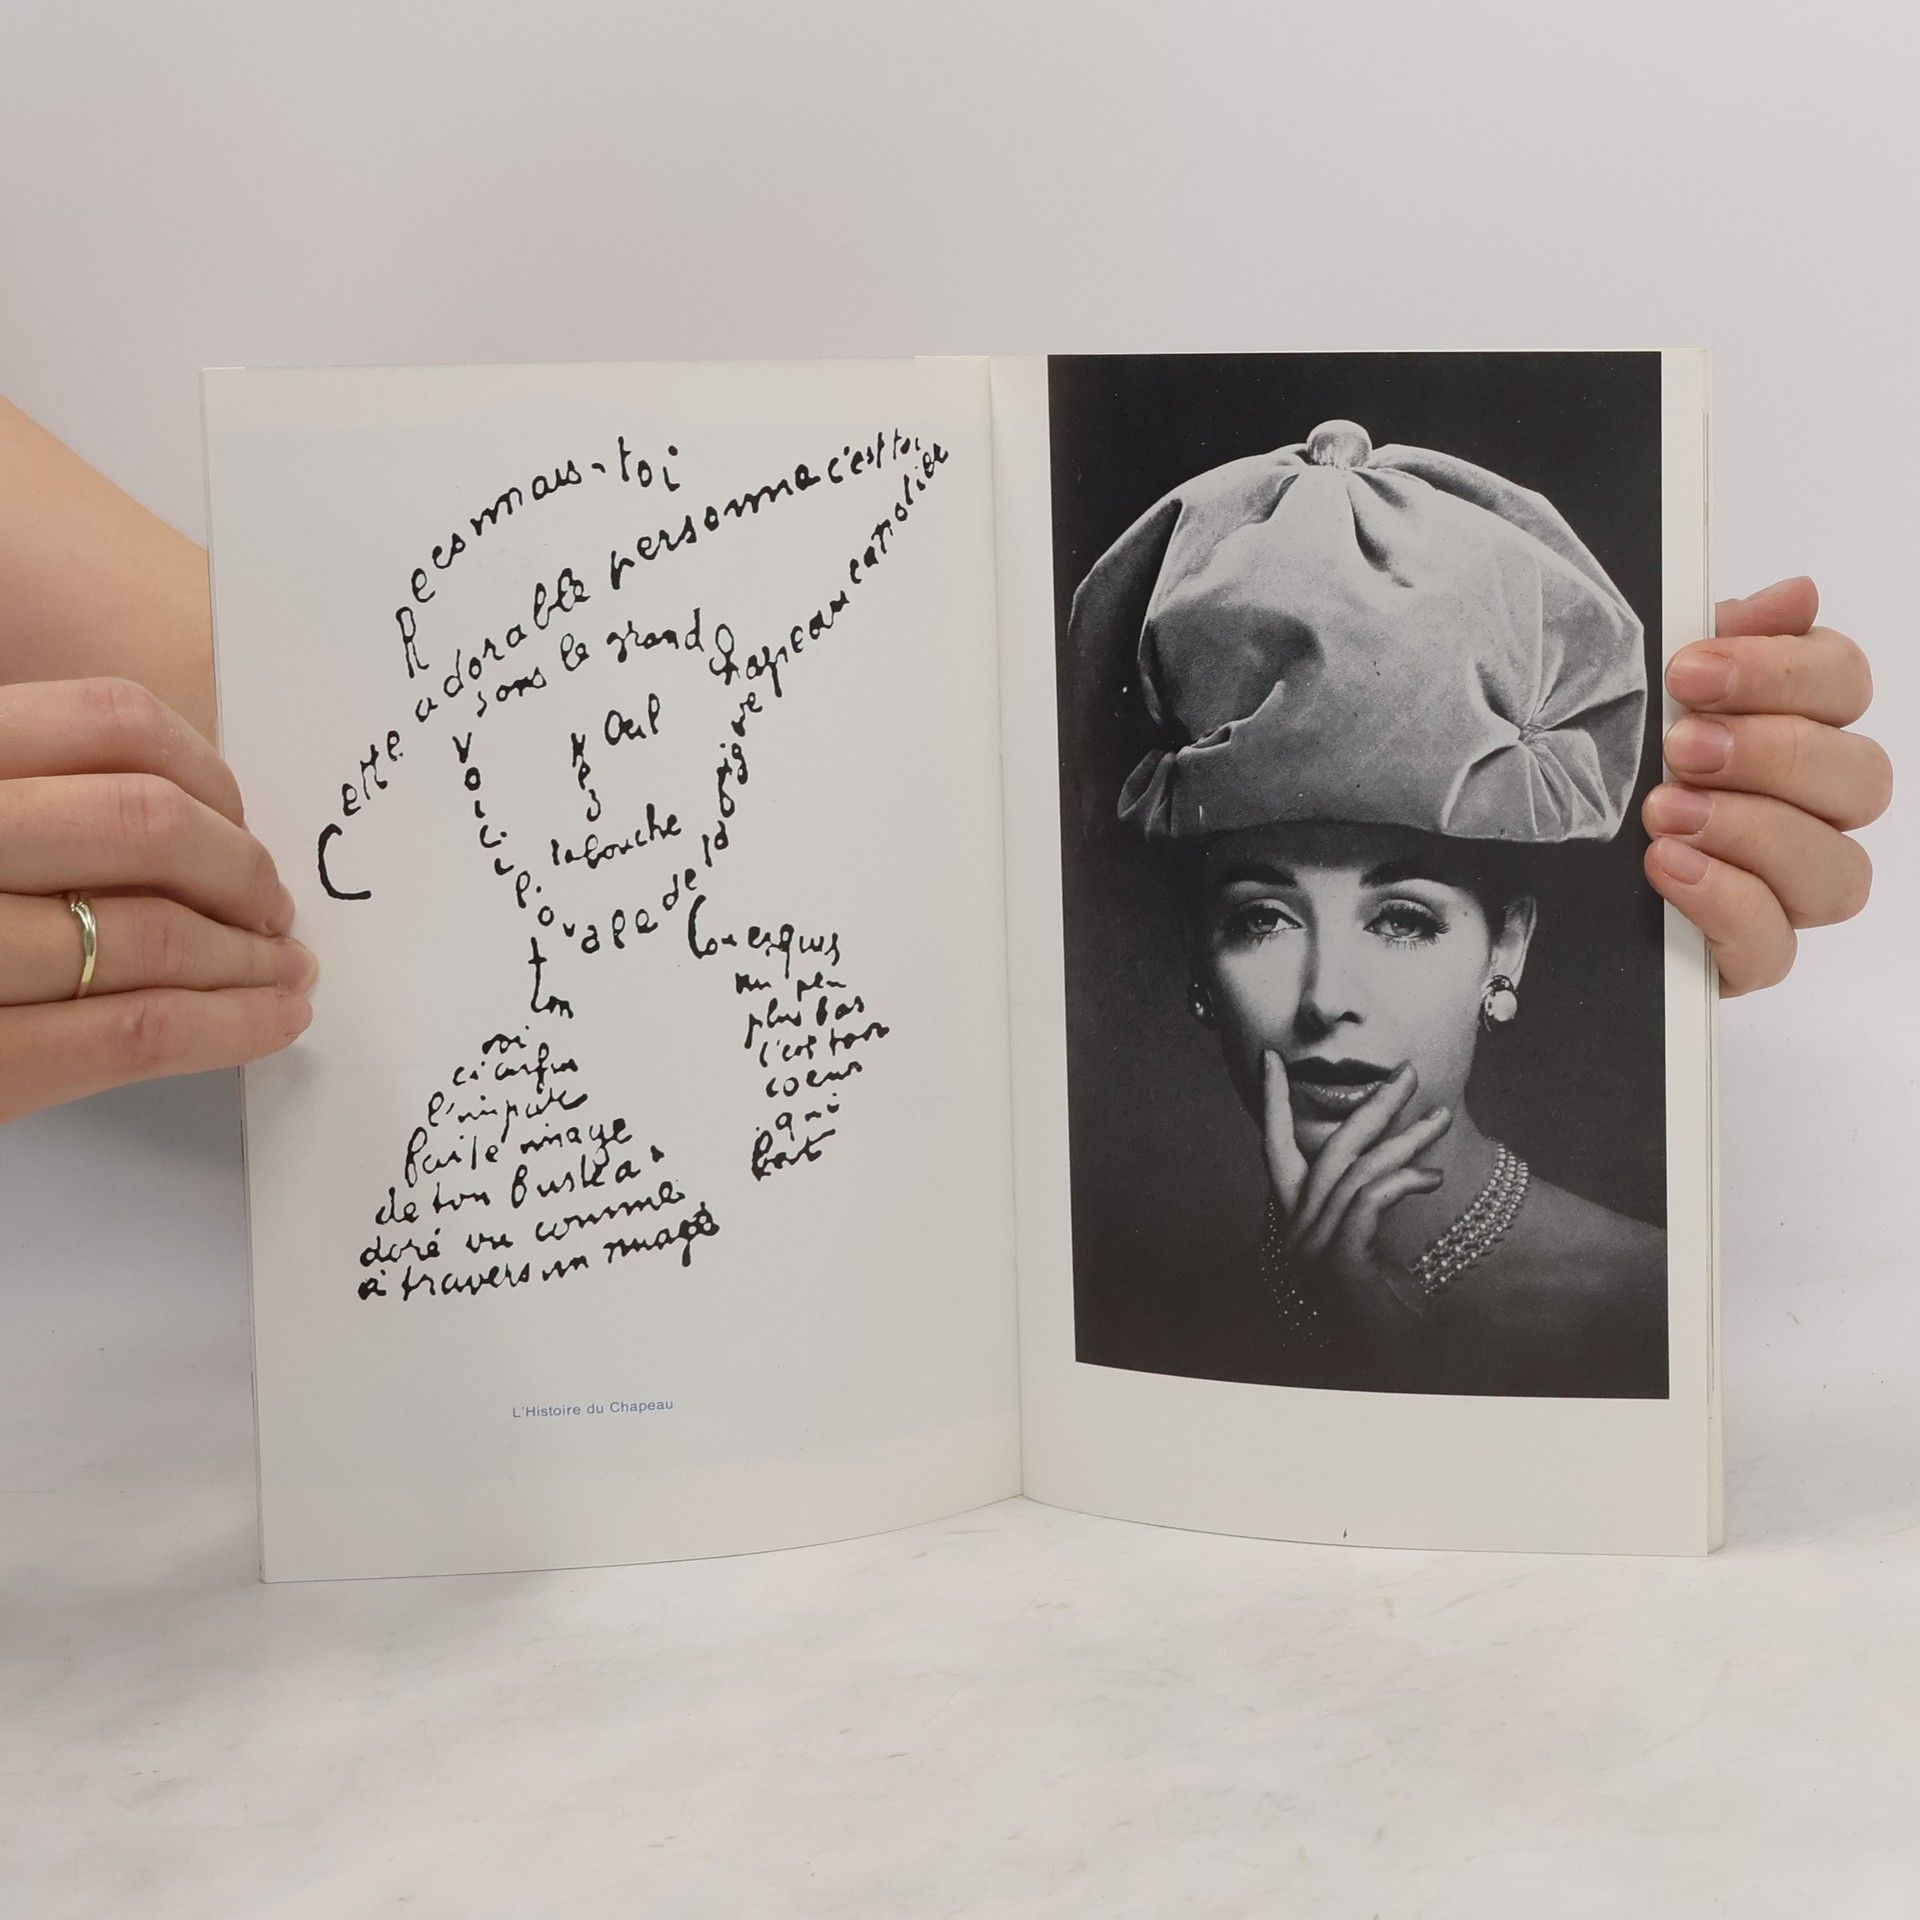 Reconnais-toi
Cette adorable personne c'est toi
sous le grand chapeau canotier
Oeil
Nez
la bouche
Voici l'ovale de ta figure
ton
cou exquis
un peu
plus bas
c'est ton
coeur
qui
bat
ci enfin
l'impar
faite image
de ton buste a
doré vu comme
à travers un nuage
L'Histoire du Chapeau